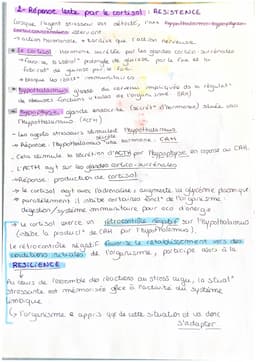 2- Réponse lente par le cortisol : RESISTENCE
Lorsque l'agent stressant est détecté, l'axe hypothalamo-hypophyso-
cortico-surrénalien
→ action hormonale → tardive que l'action nerveuse
Le cortisol : hormone sécrétée par les glandes cortico-surrénales
→ favorise la
→ bloque les réact° immunitaires
Hypothalamus : glande du cerveau impliquée ds la régulat°
de diverses fonctions vitales de l'organisme (CRH)
Hypophyse : glande endocrine (sécrét° d'hormone) située sous
l'hypothalamus (ACTH)
- Les agents stresseurs stimulent l'hypothalamus
- Réponse : l'hypothalamus sécrète une hormone : CRH
- Cela stimule la sécrétion d'ACTH par l'hypophyse en réponse au CRH.
- L'ACTH agit sur les glandes cortico-surrénales
→ Réponse : production de cortisol
→ le cortisol agit avec l'adrénaline ; augmente la glycémie plasmatique
→ parallèlement il inhibe certaines fonct° de l'organisme :
digestion / système immunitaire pour eco d'énergie
→ Le cortisol exerce un rétrocontrôle négatif sur l'hypothalamus
(inhibe la product° de CRH par l'hypothalamus).
Le rétrocontrôle négatif favorise le rétablissement vers des
conditions initiales de l'organisme, participe alors à la
RESILIENCE
Au cours de l'ensemble des réactions au stress aigu, la situat°
stressante est mémorisée grâce à l'activité du système
limbique
↳ l'organisme a appris qqc de cette situation et va donc
s'adapter